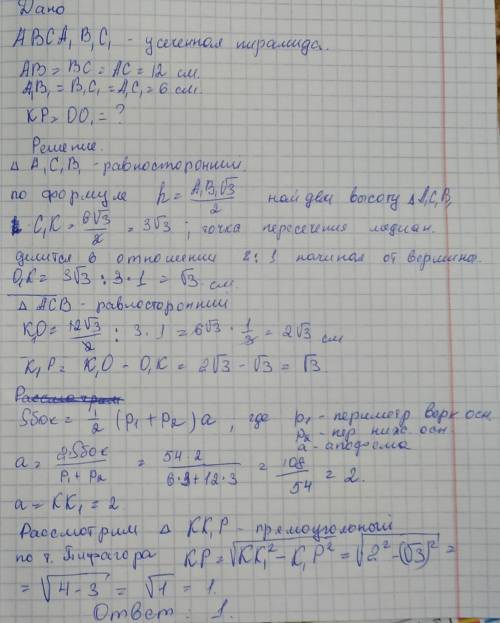 Дано
ABCA₁B₁C₁ - усеченная пирамида.
AB = BC = AC = 12 см.
A₁B₁ = B₁C₁ = A₁C₁ = 6 см.
KP = OO₁ = ?
Решение.
Δ A₁C₁B₁ - равносторонний.
по формуле h = A₁B₁√3 / 2 найдем высоту Δ A₁C₁B₁
C₁K = 6√3 / 2 = 3√3 ; точка пересечения медиан.
делится в отношении 2:1 начиная от вершины.
O₁K = 3√3 : 3 · 1 = √3 см.
Δ ACB - равносторонний
K₁O = 12√3 / 2 : 3 · 1 = 6√3 · 1/3 = 2√3 см
K₁P = K₁O - O₁K = 2√3 - √3 = √3.
Рассмотрим
Sбок = 1/2 (P₁ + P₂) a , где p₁ - периметр верх осн.
p₂ - пер. ниж. осн.
a - апофема
a = 2Sбок / P₁ + P₂ = 54·2 / 6·3+12·3 = 108 / 54 = 2.
a = KK₁ = 2
Рассмотрим Δ KK₁P - прямоугольный
по т. Пифагора KP = √KK₁² - K₁P² = √2² - (√3)² =
= √4 - 3 = √1 = 1.
Ответ : 1.